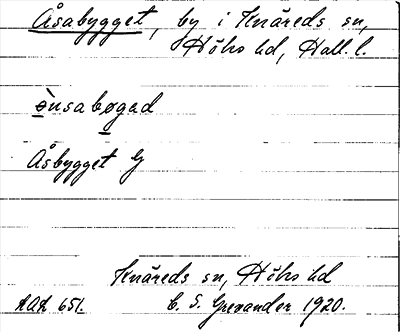 Åsabygget, by i Knäreds sn,
Höks hd, Hall. l.
ònsabøgəd
Åsbygget G
Knäreds sn, Höks hd
651. C. S. 1920.